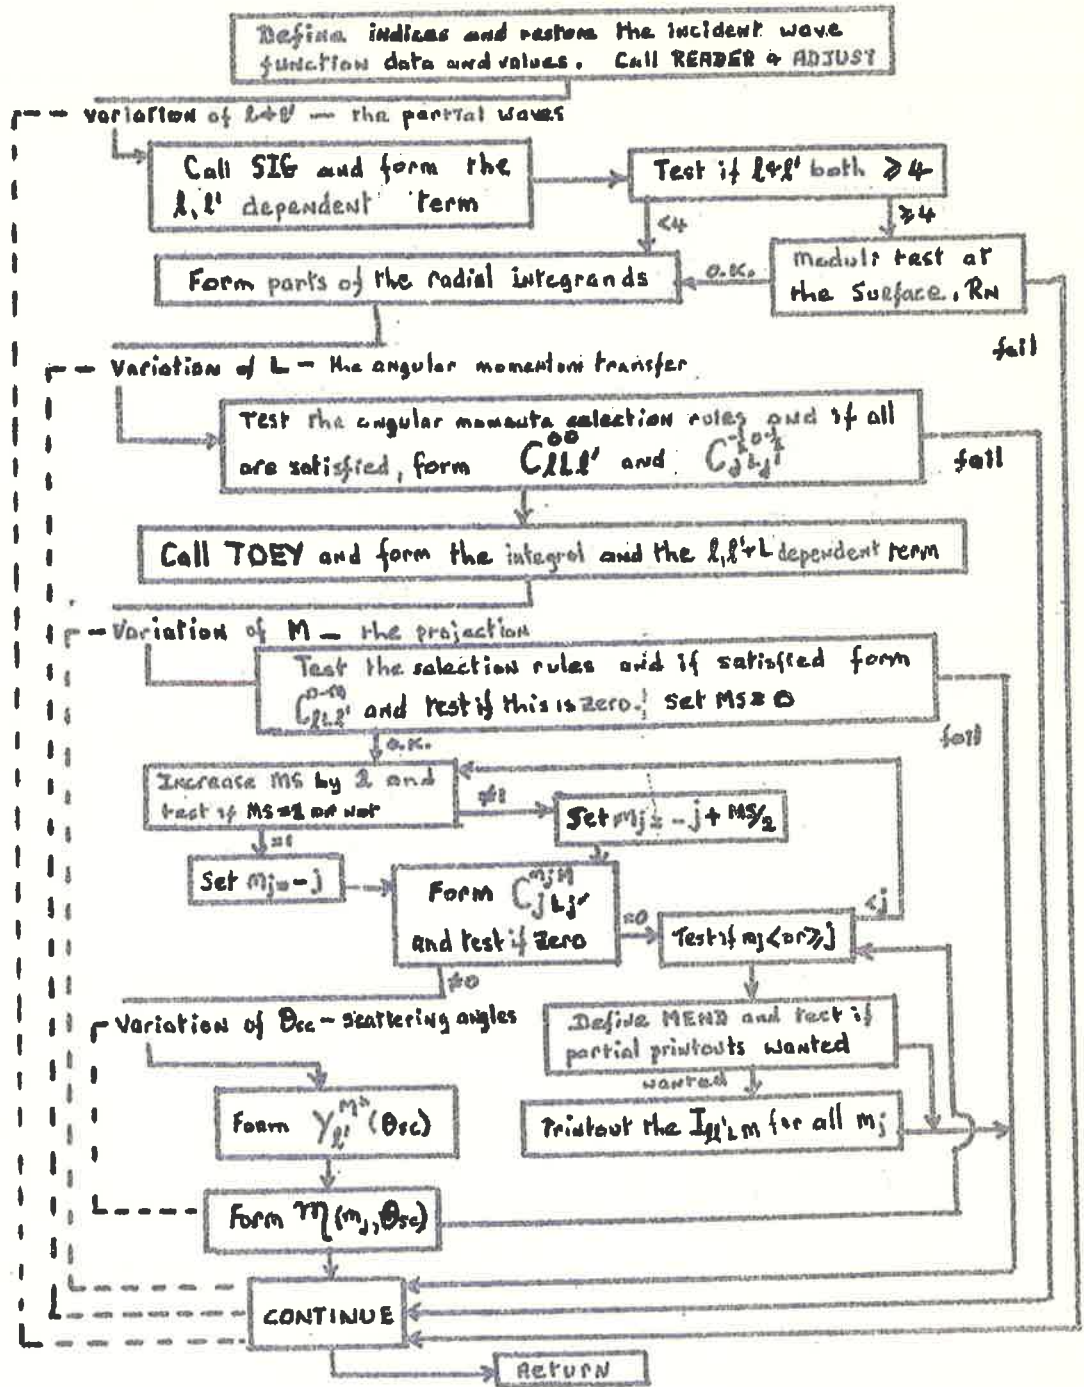 Define indices and restore the incident wave
function data and values. Call READER & ADJUST
Variation of l & l' — the partial waves
Call SIG and form the
l, l' dependent term
Test if l & l' both ≥4
<4
≥4
Form parts of the radial integrands
o.k.
Moduli test at
the Surface, RN
fail
Variation of L — the angular momentum transfer
Test the angular momenta selection rules and if all
are satisfied, form C and C
fail
Call TOEY and form the integral and the l, l' & L dependent term
Variation of M — the projection
Test the selection rules and if satisfied form
C and test if this is zero. Set MS = 0
fail
o.k.
Increase MS by 2 and
test if MS = 2 or not
≠1
Set mj = -j + MS/2
=1
Set mj = -j
Form C
and test if zero
=0
Test if mj < or ≥ j
<j
≠0
Variation of θsc — scattering angles
Define MEND and test if
partial printouts wanted
wanted
Form Y (θsc)
Printout the Ill'LM for all mj
Form M(mj, θsc)
CONTINUE
RETURN